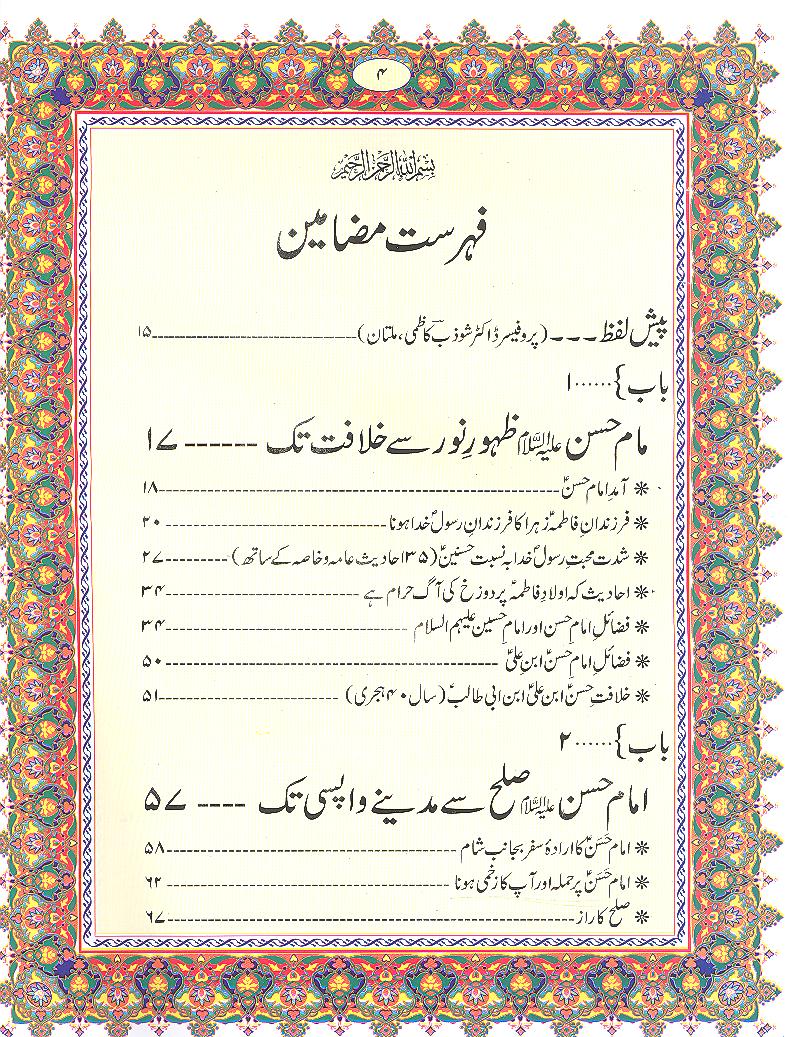 ۴
بسم اللہ الرحمن الرحیم
فہرست مضامین
پیش لفظ۔۔۔(پروفیسر ڈاکٹر شوذب کاظمی، ملتان)------------------------------۱۵
باب}......۱
مام حسن علیہ السلام ظہورِ نور سے خلافت تک ------ ۱۷
* آمدِ امام حسنؑ------------------------------------------------------------۱۸
* فرزندانِ فاطمہؑ زہرا کا فرزندانِ رسولؐ خدا ہونا---------------------------------۲۰
* شدت محبتِ رسولؐ خدا بہ نسبت حسنینؑ (۳۵ احادیث عامہ و خاصہ کے ساتھ)---------۲۷
* احادیث کہ اولادِ فاطمہؑ پر دوزخ کی آگ حرام ہے -----------------------------۳۴
* فضائلِ امام حسن اور امام حسین علیہم السلام ------------------------------------۳۴
* فضائلِ امام حسنؑ ابنِ علیؑ --------------------------------------------------۵۰
* خلافتِ حسنؑ ابن علیؑ ابن ابی طالبؑ (سال ۴۰ ہجری) ---------------------------۵۱
باب}......۲
امام حسن علیہ السلام صلح سے مدینے واپسی تک ---- ۵۷
* امام حَسَنؑ کا ارادۂ سفر بجانب شام--------------------------------------------۵۸
* امام حَسَنؑ پر حملہ اور آپ کا زخمی ہونا -------------------------------------------۶۲
* صلح کا راز--------------------------------------------------------------۶۷